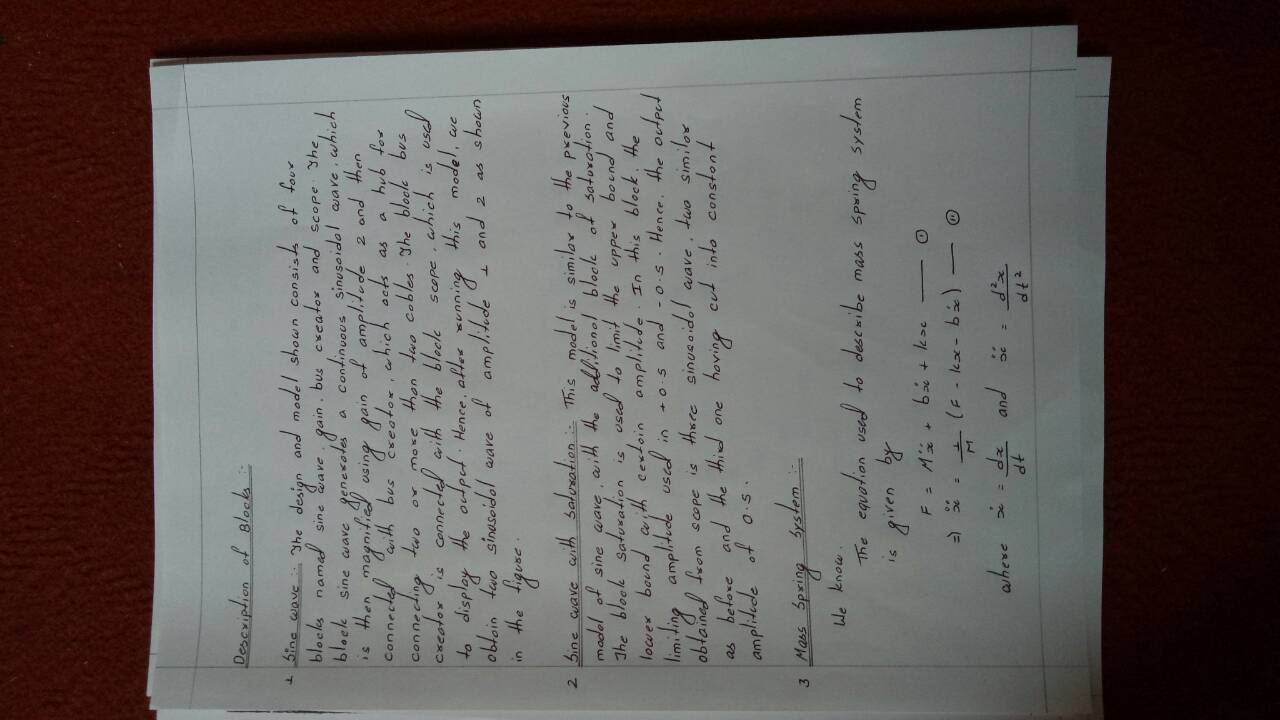 Description of Blocks :-
1 Sine wave :- The design and model shown consists of four
blocks named sine wave, gain, bus creator and scope. The
block sine wave generates a continuous sinusoidal wave, which
is then magnified using gain of amplitude 2 and then
connected with bus creator, which acts as a hub for
connecting two or more than two cables. The block bus
creator is connected with the block scope, which is used
to display the output. Hence, after running this model, we
obtain two sinusoidal wave of amplitude 1 and 2 as shown
in the figure.
2 Sine wave with Saturation :- This model is similar to the previous
model of sine wave, with the additional block of saturation.
The block saturation is used to limit the upper bound and
lower bound with certain amplitude. In this block, the
limiting amplitude used in +0.5 and -0.5. Hence, the output
obtained from scope is three sinusoidal wave, two similar
as before and the third one having cut into constant
amplitude of 0.5.
3 Mass Spring System :-
We know,
The equation used to describe mass spring system
is given by
F = Mẍ + bẋ + kx — ①
⇒ ẍ = 1/M (F - kx - bẋ) — ⑪
where ẋ = dx/dt and ẍ = d²x/dt²